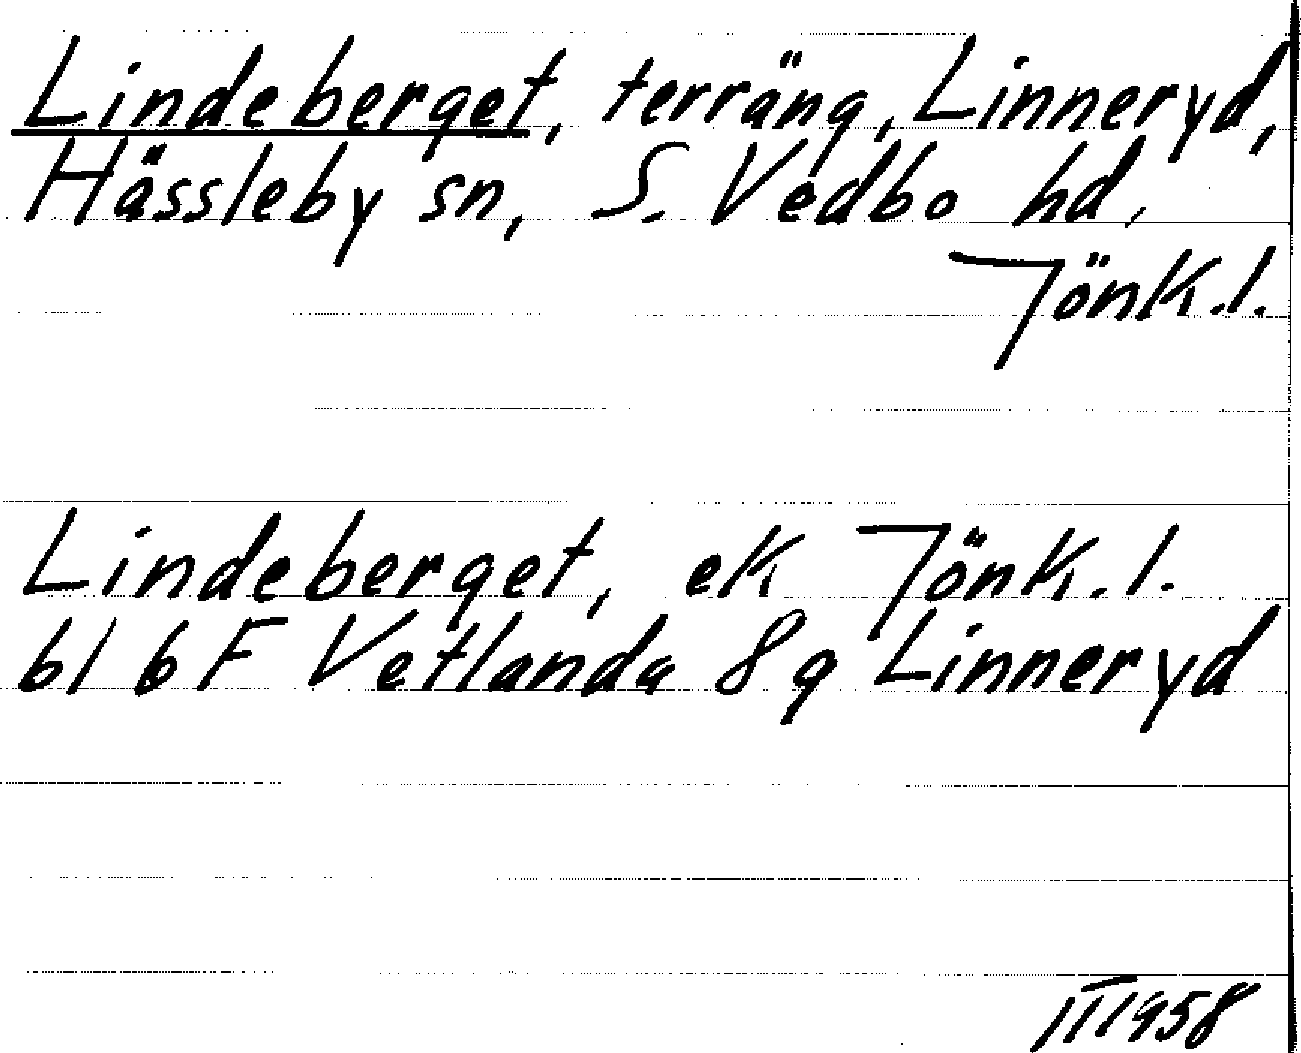 Lindeberget, terräng, Linneryd,
Hässleby sn, S. Vedbo hd,
Jönk.l.
Lindeberget, ek Jönk.l.
bl 6 F Vetlanda 8 g Linneryd
1958